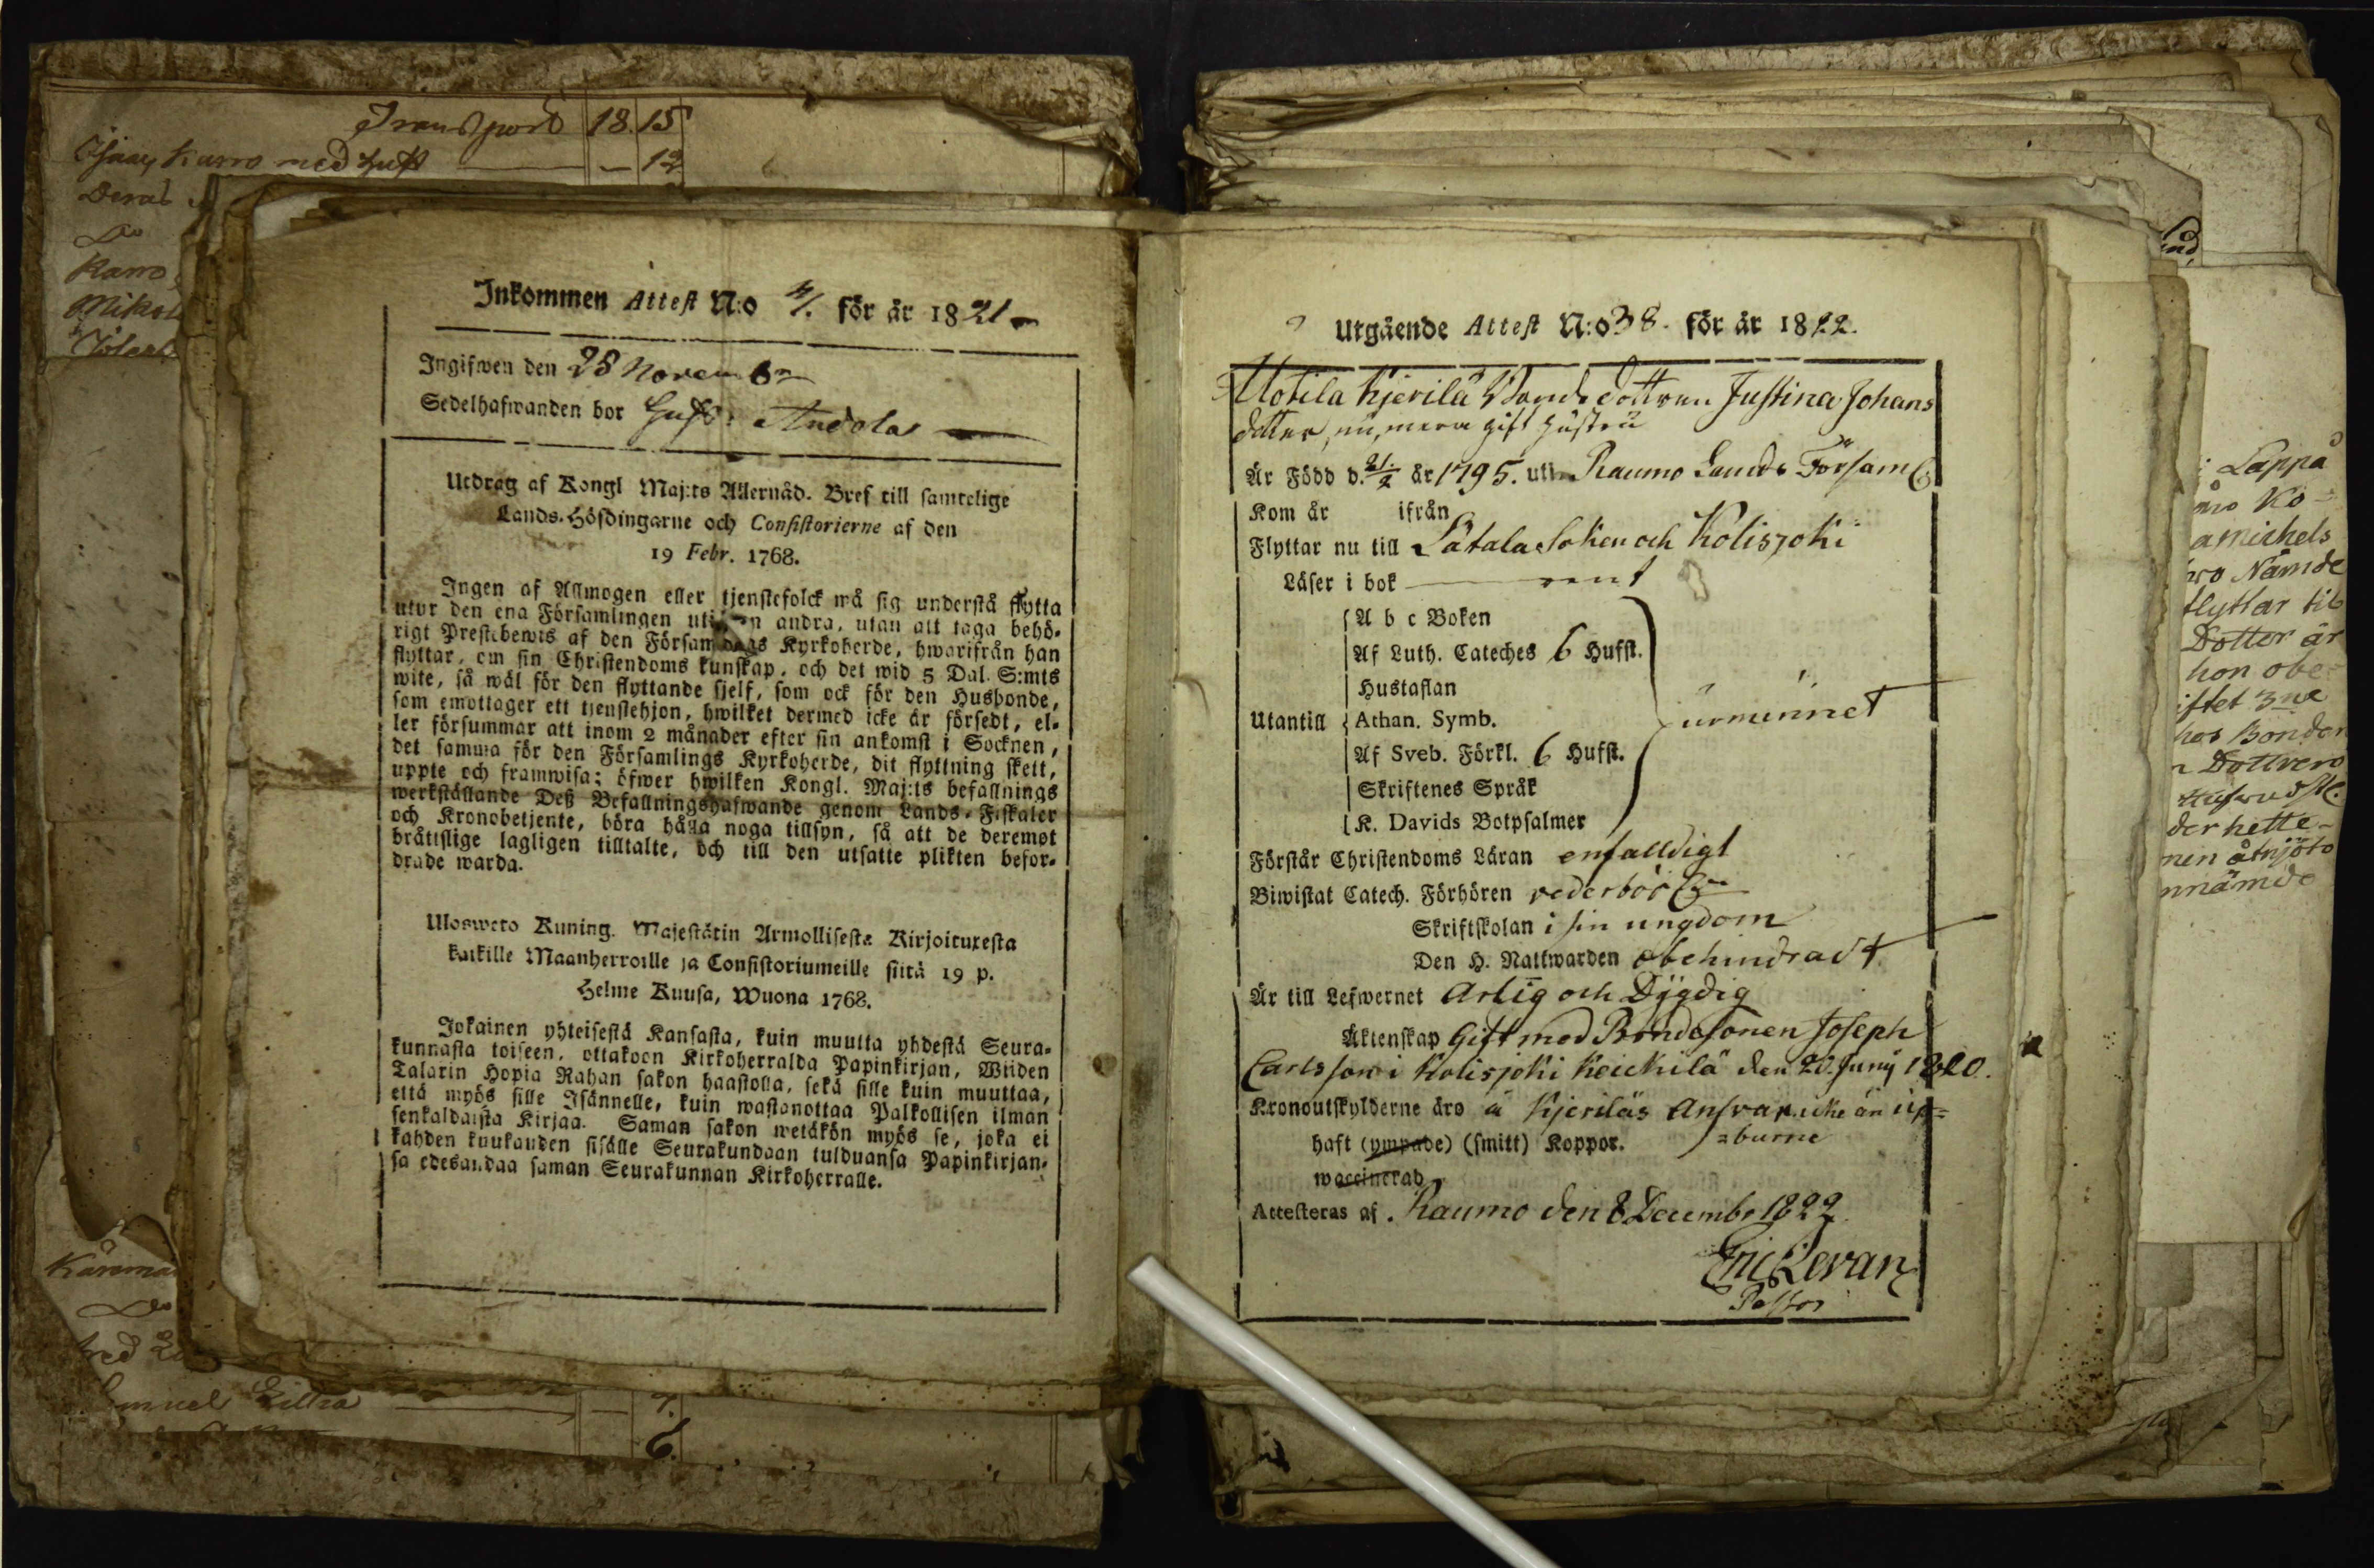 Transport 18.15
Karro med
— 12
Do
Karro
Inkommen Attest N:o 4/. för år 1821
Ingifwen den 28 November
Sedelhafwanden bor Andola
Utdrag af Kongl Maj:ts Allernåd. Bref till samtelige
Lands-Höfdingarne och Consistorierne af den
19 Febr. 1768.
Ingen af Allmogen eller tjenstefolck må sig understå flytta
utur den ena Församlingen uti en andra, utan att taga behö-
rigt Prestebewis af den Församlings Kyrkoherde, hwarifrån han
flyttar, om sin Christendoms kunskap, och det wid 5 Dal. S:mts
wite, så wäl för den flyttande sjelf, som ock för den Husbonde,
som emottager ett tjenstehjon, hwilket dermed icke är försedt, el-
ler försummar att inom 2 månader efter sin ankomst i Socknen,
det samma för den Församlings Kyrkoherde, dit flyttning skett,
uppte och framwisa; öfwer hwilken Kongl. Maj:ts befallnings
werkställande Deß Befallningshafwande genom Lands-Fiskaler
och Kronobetjente, böra hålla noga tillsyn, så att de deremot
bråttslige lagligen tilltalte, och till den utsatte plikten befor-
drade warda.
Ulosweto Kuning. Majestätin Armollisesta Kirjoituxesta
kaikille Maanherroille ja Consistoriumeille siitä 19 p.
Helme Kuusa, Wuona 1768.
Jokainen yhteisestä Kansasta, kuin muutta yhdestä Seura-
kunnasta toiseen, ottakoon Kirkoherralda Papinkirjan, Wiiden
Talarin Hopia Rahan sakon haastolla, sekä sille kuin muuttaa,
että myös sille Isännelle, kuin wastanottaa Palkollisen ilman
senkaldaista Kirjaa. Saman sakon wetäkön myös se, joka ei
kahden kuukauden sisälle Seurakundaan tulduansa Papinkirjan-
sa edesandaa saman Seurakunnan Kirkoherralle.
Do
Samuel
Utgående Attest N:o 38. för år 1822.
Kjerilä Bonde dottren Justina Johans
dotter, nu mera gift hustru
Är Född d. 21/2 år 1795. uti Raumo Lands Församl:
Kom år ifrån
Flyttar nu till Lätala Soken och Kolisjoki
Läser i bok rent
A b c Boken
Af Luth. Cateches 6 Hufst.
Hustaflan
Utantill Athan. Symb. urminnet
Af Sveb. Förkl. 6 Hufst.
Skriftenes Språk
K. Davids Botpsalmer
Förstår Christendoms Läran enfalldigt
Biwistat Catech. Förhören vederbörl:
Skriftskolan i sin ungdom
Den H. Nattwarden obehindradt
Är till Lefwernet Ärlig och Dygdig
Äktenskap Gift med Bondesonen Joseph
Carlsson i Kolisjoki Keickilä den 20 Junij 1820.
Kronoutskylderne äro å Kjeriläs Ansvar, icke än up=
=burne
haft (ympade) (smitt) Koppor.
waccinerad
Attesteras af. Raumo den 8 Decembr 1822
Eric Levan
Pastor
Lappå
Ko-
amichels
Nämde
flyttar til
Dotter är
hon obe-
iftet 3ne
hos Bonden
Dottren
der hette-
nen åtnjöto
nnämde